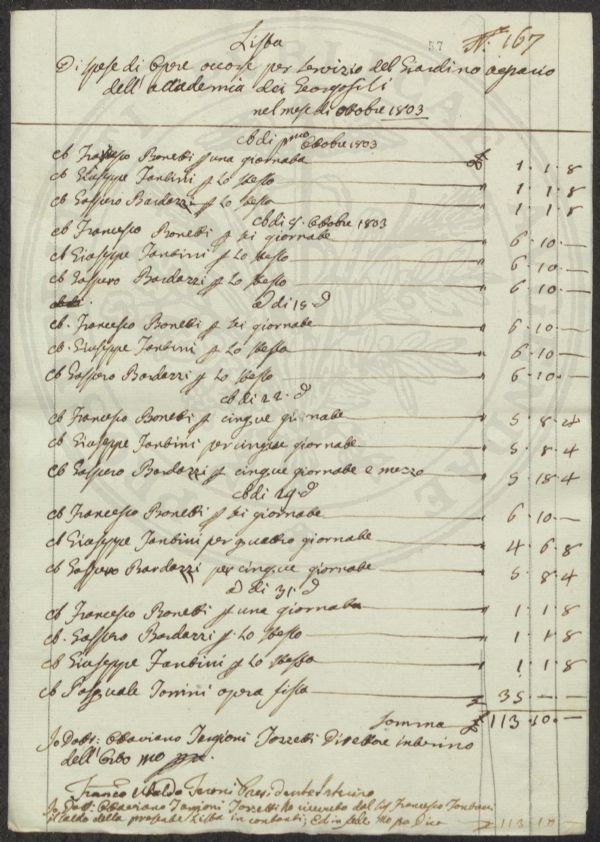 57 N.° 167
Lista
Di spese di Opere occorse per servizio del Giardino agrario
dell'accademia dei Georgofili
nel mese di ottobre 1803
A di pmo Ottobre 1803
A Francesco Bonetti p una giornata 1.1.8
A Giuseppe Fantini p Lo stesso " 1.1.8
A Gaspero Bardazzi p Lo stesso " 1.1.8
A di Ottobre 1803
A Francesco Bonetti p sei giornate " 6.10.—
A Giuseppe Fantini p Lo stesso " 6.10.—
A Gaspero Bardazzi p Lo stesso " 6.10.—
A di 15. d
A. Francesco Bonetti p sei giornate " 6.10.—
A. Giuseppe Fantini p Lo stesso " 6.10.—
A Gaspero Bardazzi p Lo stesso " 6.10.—
A di 22. d
A Francesco Bonetti p cinque giornate " 5.8.4
A Giuseppe Fantini per cinque giornate " 5.8.4
A Gaspero Bardazzi p cinque giornate e mezzo " 5.18.4
A di 29. d
A Francesco Bonetti p sei giornate " 6.10.—
A Giuseppe Fantini per quattro giornate " 4.6.8
A Gaspero Bardazzi per cinque giornate " 5.8.4
A di 31. d
A Francesco Bonetti p una giornata " 1.1.8
A. Gaspero Bardazzi p. Lo stesso " 1.1.8
A Giuseppe Fantini p Lo stesso " 1.1.8
A Pasquale Tonini opera fissa " 35.—.—
Somma 113.10.—
Io Dott: Ottaviano Targioni Tozzetti Direttore interino
dell'Orto mo ppa.
Franco Ubaldo Feroni Presidente Interino
Io Dott: Ottaviano Targioni Tozzetti ho ricevuto dal Sig Francesco
il saldo della presente Lista in contanti; ed in fede mo pa dico 113.10.—